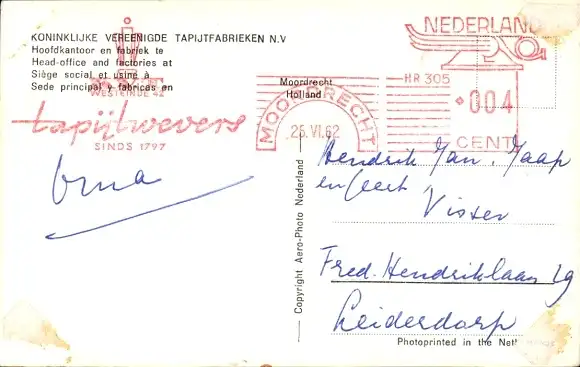 KONINKLIJKE VEREENIGDE TAPIJTFABRIEKEN N.V
Hoofdkantoor en fabriek te
Head-office and factories at
Siège social et usine à
Sede principal y fabricas en
Moordrecht
Holland
WESTEINDE 42
tapijtwevers
SINDS 1797
MOORDRECHT
25.VI.62
NEDERLAND
HR 305
004
CENT
Oma
Hendrik Jan, Jaap
en Geert
Visser
Fred. Hendriklaan 29
Leiderdorp
Copyright Aero-Photo Nederland
Photoprinted in the Netherlands